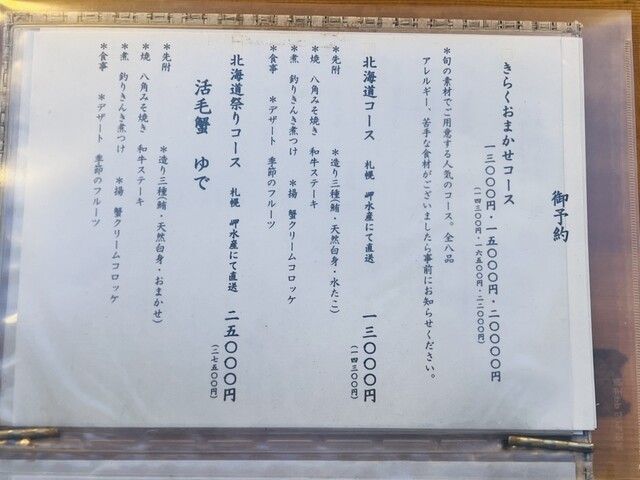 御予約
きらくおまかせコース
一三〇〇〇円・一五〇〇〇円・二〇〇〇〇円
(一四三〇〇円・一六五〇〇円・二二〇〇〇円)
*旬の素材でご用意する人気のコース。全八品
アレルギー、苦手な食材がございましたら事前にお知らせください。
北海道コース 札幌 岬水産にて直送 一三〇〇〇円
(一四三〇〇円)
*先附 *造り三種(鮪・天然白身・水たこ)
*焼 八角みそ焼き 和牛ステーキ
*煮 釣りきんき煮つけ *揚 蟹クリームコロッケ
*食事 *デザート 季節のフルーツ
北海道祭りコース 札幌 岬水産にて直送 二五〇〇〇円
(二七五〇〇円)
活毛蟹 ゆで
*先附 *造り三種(鮪・天然白身・おまかせ)
*焼 八角みそ焼き 和牛ステーキ
*煮 釣りきんき煮つけ *揚 蟹クリームコロッケ
*食事 *デザート 季節のフルーツ